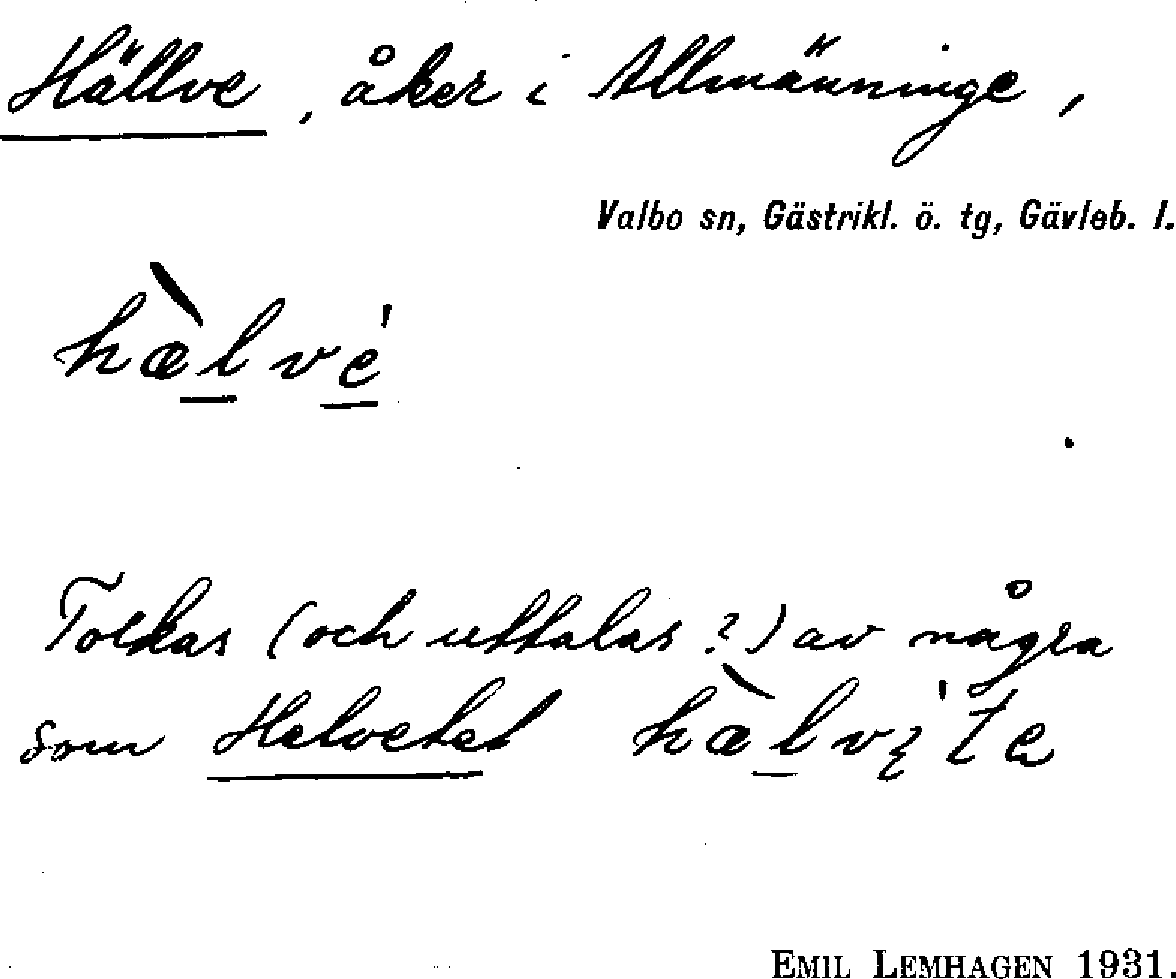 Hällve, åker i Allmänninge,
Valbo sn, Gästrikl. ö. tg, Gävleb. l.
hæ̀lve̍
Tolkas (och uttalas?) av några
som Helvetet hæ̀lvı̨̍te
EMIL LEMHAGEN 1931.